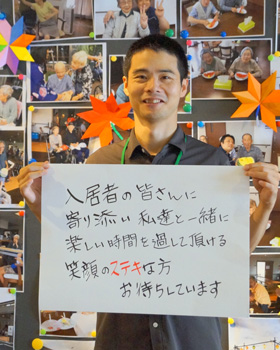 入居者の皆さんに
寄り添い 私達と一緒に
楽しい時間を過して頂ける
笑顔のステキな方
お待ちしています